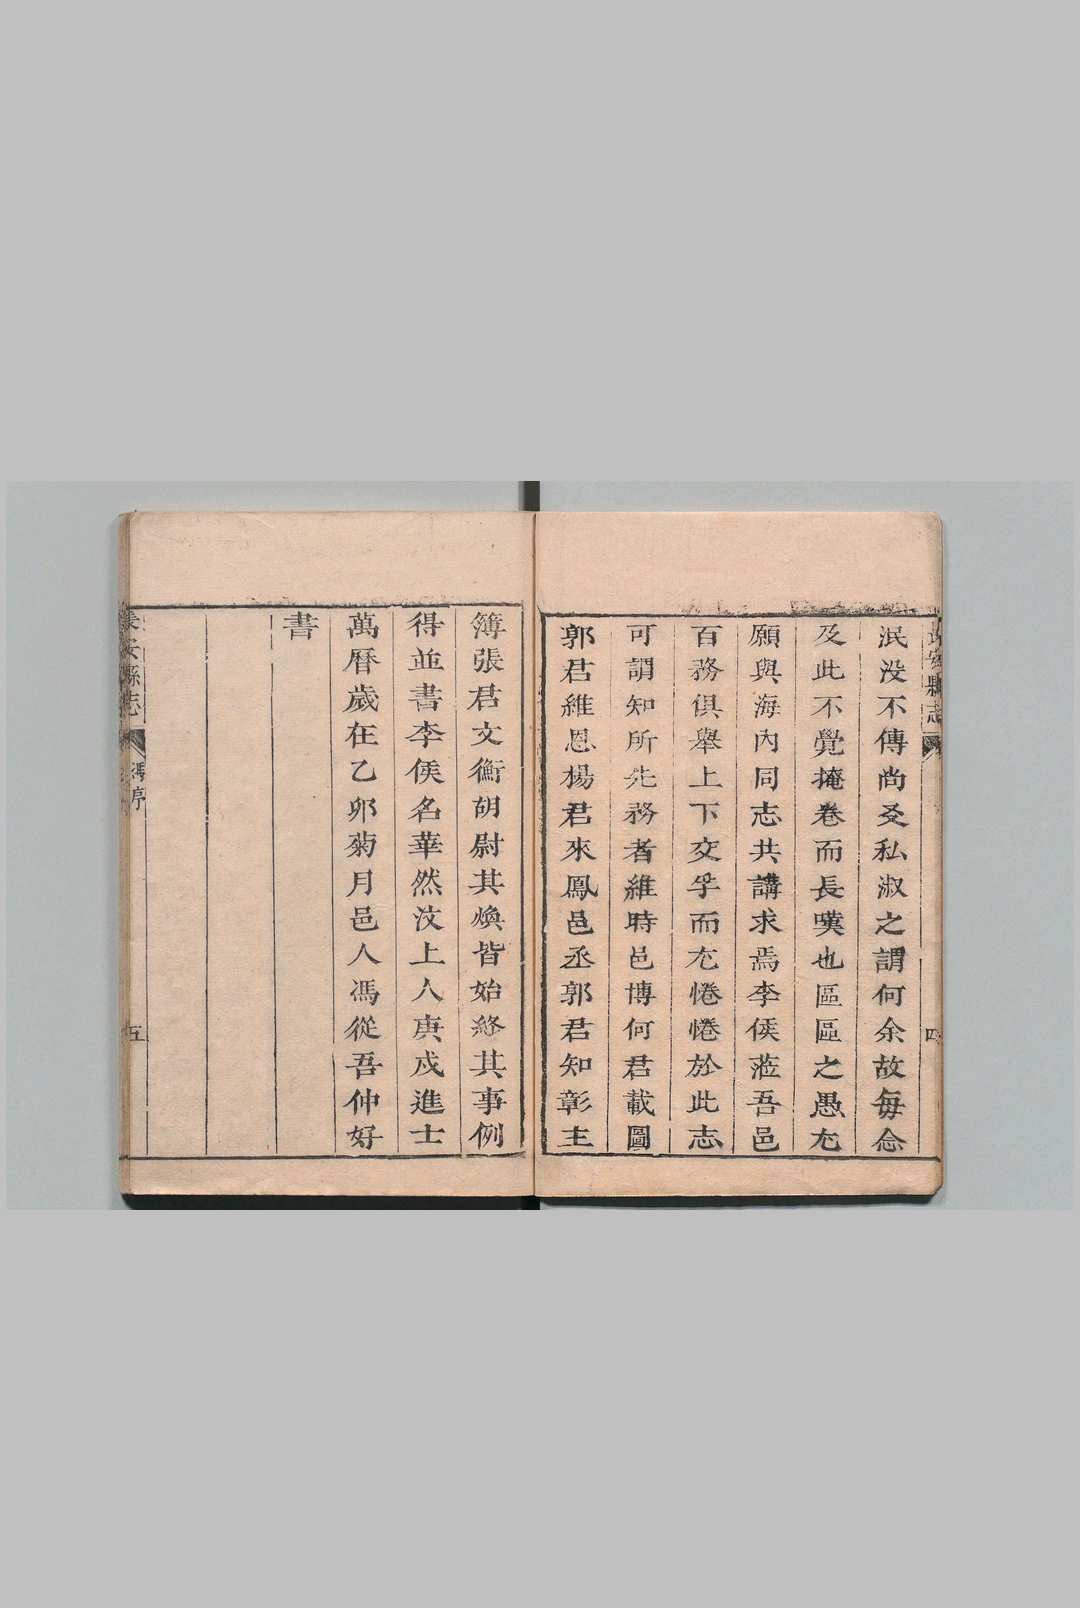 泯没不傳尚爻私淑之謂何余故每念
及此不覺掩卷而長嘆也區區之愚尤
願與海内同志共講求焉李侯蒞吾邑
百務俱舉上下交孚而尤惓惓於此志
可謂知所先務者維時邑博何君載圖
郭君維恩楊君來鳳邑丞郭君知彰主
簿張君文衡胡尉其煥皆始終其事例
得並書李侯名華然汶上人庚戍進士
萬曆歲在乙卯菊月邑人馮從吾仲好
書
長安縣志
四
長安縣志
馮序
五